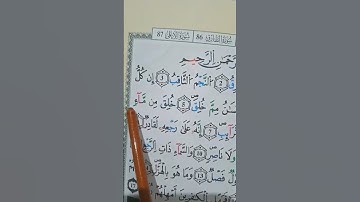 سورة الطارق 86 سورة الأعلى 87
الرَّحِيمِ
2 النَّجْمُ الثَّاقِبُ 3 إِن كُلُّ
مِمَّ خُلِقَ 5 خُلِقَ مِن مَّآءٍ
7 إِنَّهُ عَلَىٰ رَجْعِهِ لَقَادِرٌ
وَلَا نَاصِرٍ 10 وَالسَّمَآءِ ذَاتِ
فَصْلٌ 13 وَمَا هُوَ بِالْهَزْلِ
الْكَٰفِرِينَ أَمْهِلْهُمْ